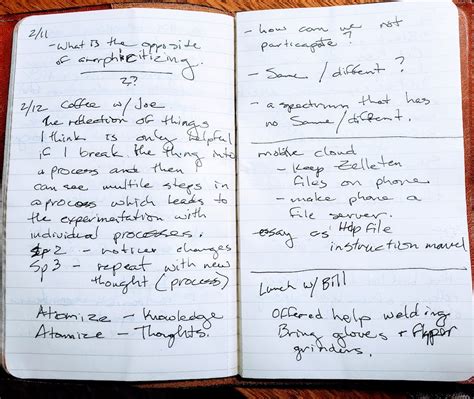 2/11
- What is the opposite
of amorphisciticing.
??
2/12 Coffee w/ Joe
The reflection of things
I think is only helpful
if I break the thing into
a process and then I
can see multile steps in
a process which leads to
the experimatation with
individual processes.
Sp 2 - notices changes
Sp 3 - repeat with new
thought (process)
Atomize - Knowledge
Atomize - Thoughts.
- how can we not
participate?
- Same / different?
- a spectrum that has
no Same / different.
mobile cloud
- Keep Zelleten
files on phone
- make phone a
file server.
- essay as Http file
instruction manvel
Lunch w/ Bill
Offered help welding
Bring gloves +
grinders.